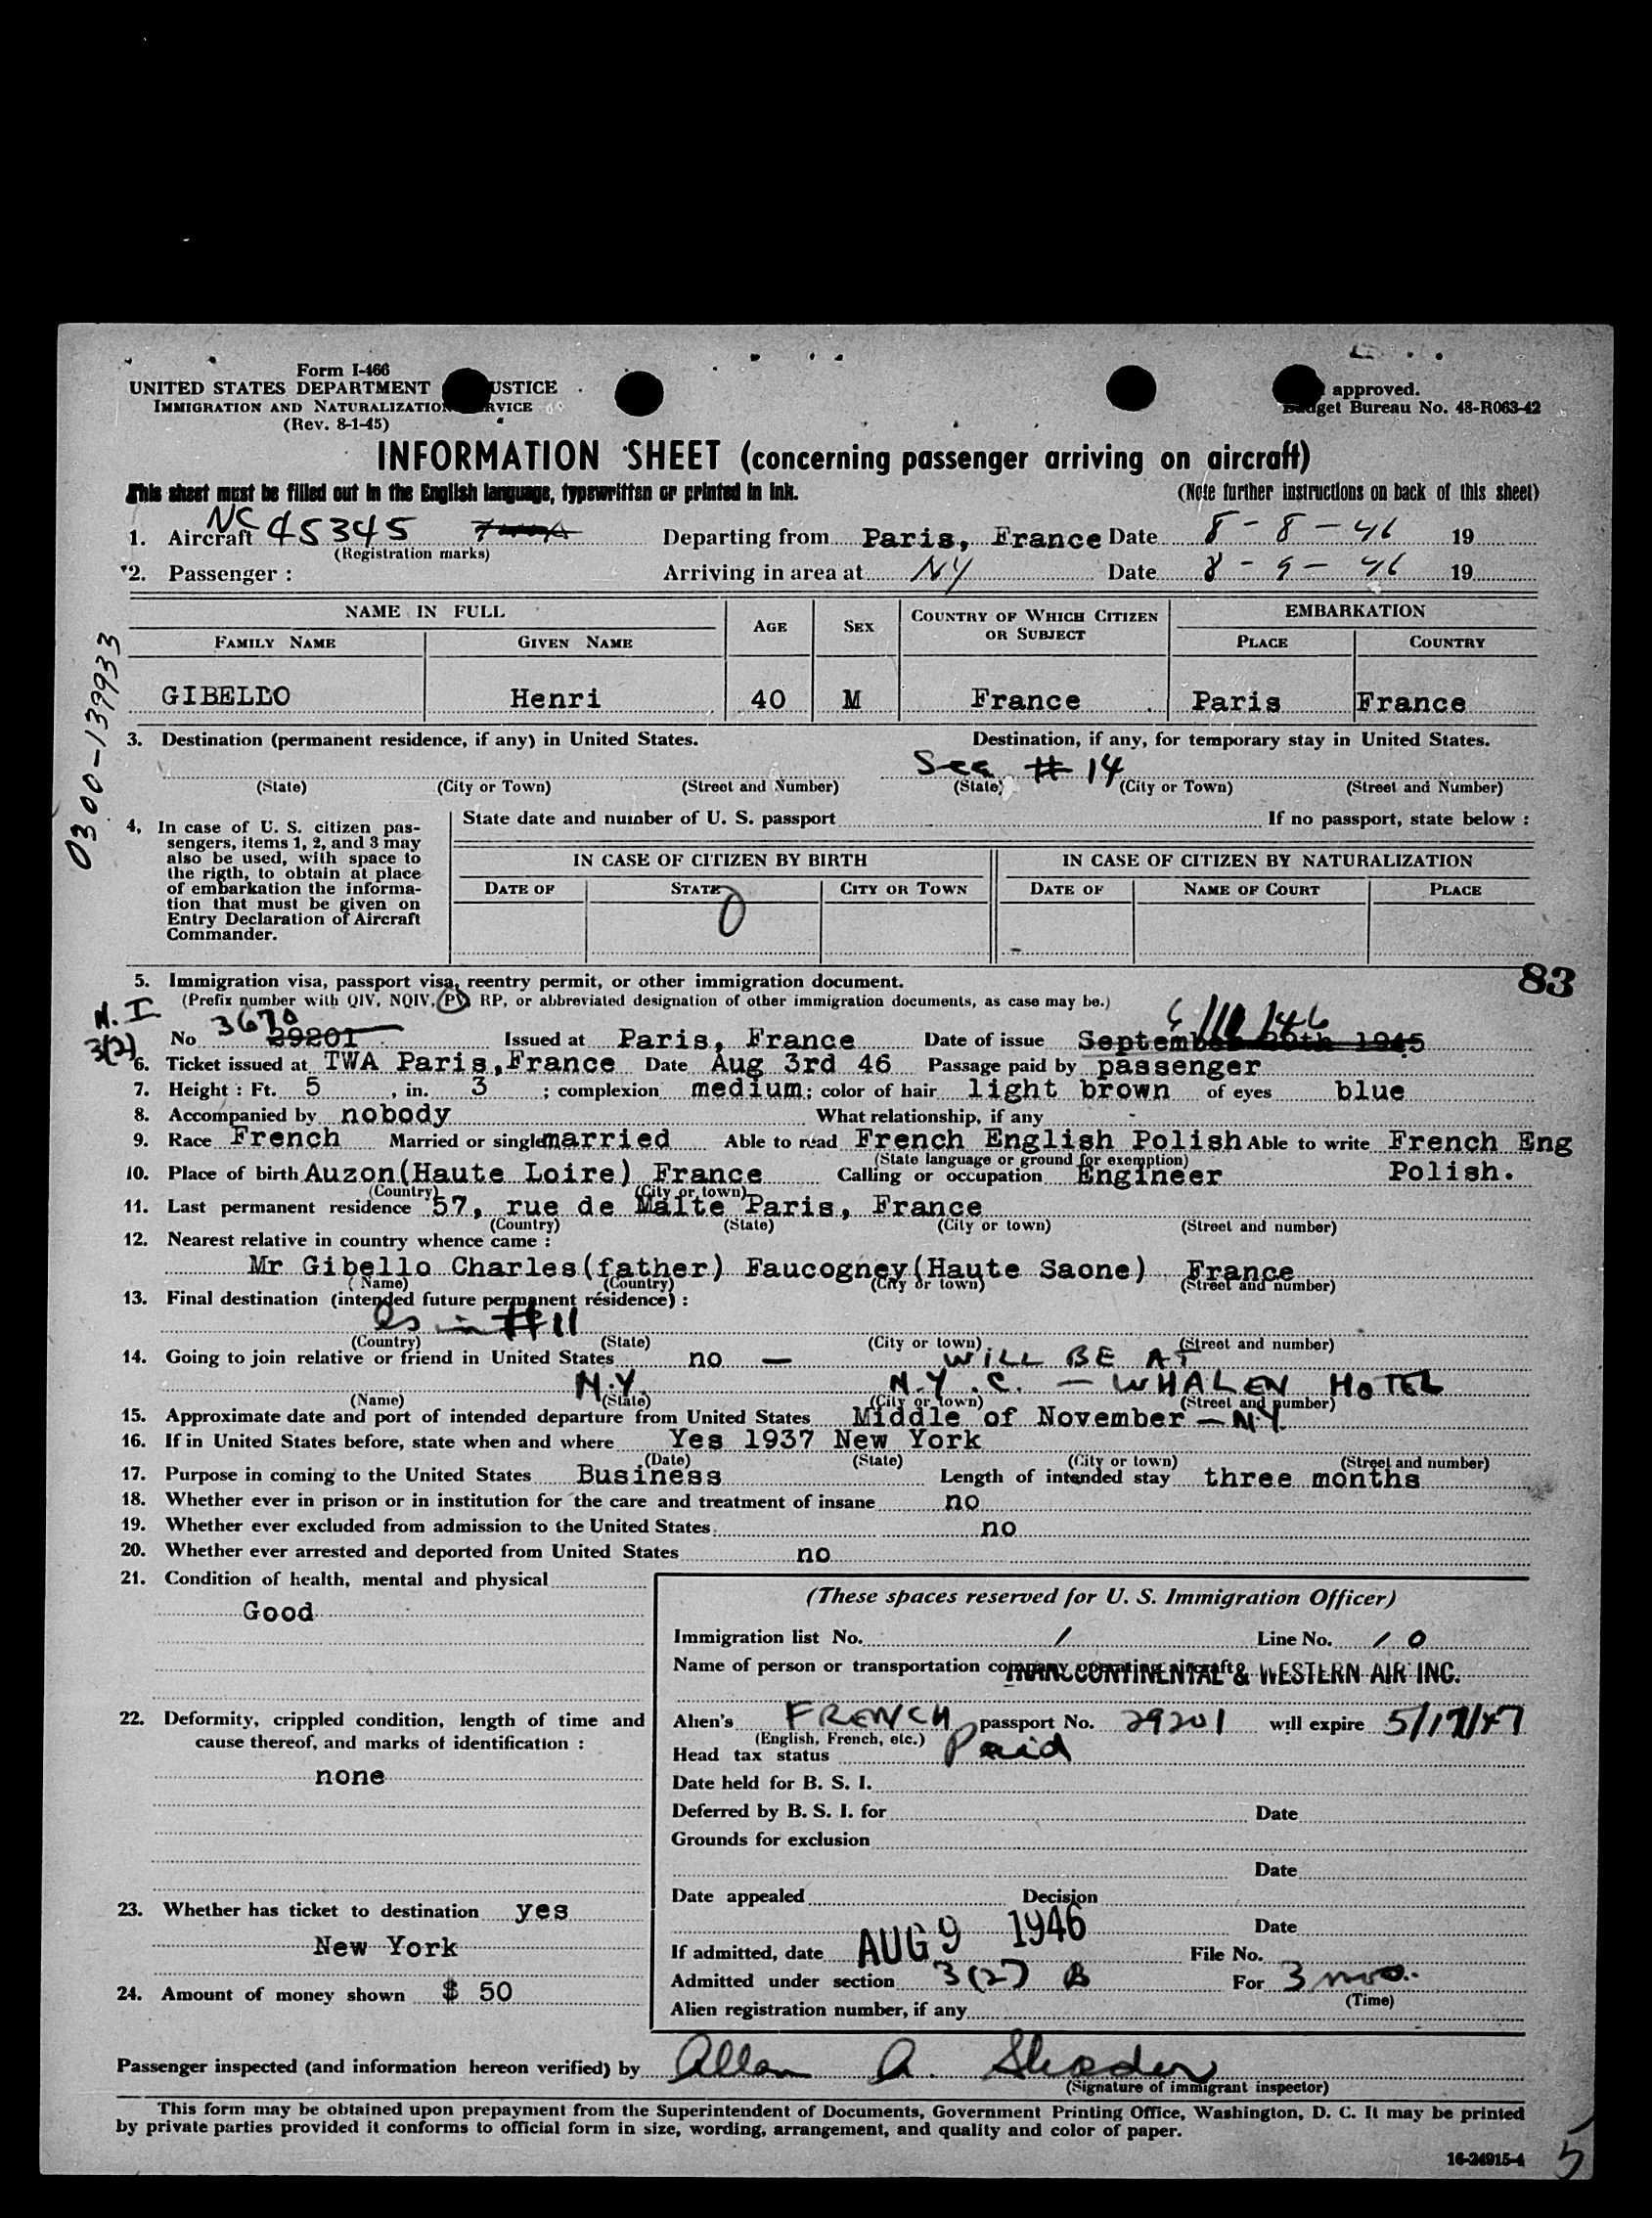 Form I-466
UNITED STATES DEPARTMENT USTICE
IMMIGRATION AND NATURALIZATION RVICE
(Rev. 8-1-45)
approved.
Budget Bureau No. 48-R063-42
INFORMATION SHEET (concerning passenger arriving on aircraft)
This sheet must be filled out in the English language, typewritten or printed in ink.
(Note further instructions on back of this sheet)
1. Aircraft NC 45345 Departing from Paris, France Date 8-8-46 19
(Registration marks)
2. Passenger : Arriving in area at NY Date 8-9-46 19
NAME IN FULL AGE SEX COUNTRY OF WHICH CITIZEN OR SUBJECT EMBARKATION
FAMILY NAME GIVEN NAME PLACE COUNTRY
GIBELLO Henri 40 M France Paris France
0300-139933
3. Destination (permanent residence, if any) in United States. Destination, if any, for temporary stay in United States.
See # 14
(State) (City or Town) (Street and Number) (State) (City or Town) (Street and Number)
4, In case of U. S. citizen pas-
sengers, items 1, 2, and 3 may
also be used, with space to
the rigth, to obtain at place
of embarkation the informa-
tion that must be given on
Entry Declaration of Aircraft
Commander.
State date and number of U. S. passport If no passport, state below :
IN CASE OF CITIZEN BY BIRTH IN CASE OF CITIZEN BY NATURALIZATION
DATE OF STATE CITY OR TOWN DATE OF NAME OF COURT PLACE
0
83
5. Immigration visa, passport visa, reentry permit, or other immigration document.
(Prefix number with QIV, NQIV, PV, RP, or abbreviated designation of other immigration documents, as case may be.)
N.I
3(2)
3670 6/10/46
No 29201 Issued at Paris, France Date of issue September 20th 1945
6. Ticket issued at TWA Paris, France Date Aug 3rd 46 Passage paid by passenger
7. Height : Ft. 5, in. 3 ; complexion medium; color of hair light brown of eyes blue
8. Accompanied by nobody What relationship, if any -
9. Race French Married or single married Able to read French English Polish Able to write French Eng
(State language or ground for exemption)
10. Place of birth Auzon(Haute Loire) France Calling or occupation Engineer Polish.
(Country) (City or town)
11. Last permanent residence 57, rue de Malte Paris, France
(Country) (State) (City or town) (Street and number)
12. Nearest relative in country whence came :
Mr Gibello Charles(father) Faucogney(Haute Saone) France
(Name) (Country) (City or town) (Street and number)
13. Final destination (intended future permanent résidence) :
As in #11
(Country) (State) (City or town) (Street and number)
14. Going to join relative or friend in United States no — WILL BE AT
N.Y. N.Y.C. — WHALEN HOTEL
(Name) (State) (City or town) (Street and number)
15. Approximate date and port of intended departure from United States Middle of November — N.Y.
16. If in United States before, state when and where Yes 1937 New York
(Date) (State) (City or town) (Street and number)
17. Purpose in coming to the United States Business Length of intended stay three months
18. Whether ever in prison or in institution for the care and treatment of insane no
19. Whether ever excluded from admission to the United States. no
20. Whether ever arrested and deported from United States no
21. Condition of health, mental and physical
Good
22. Deformity, crippled condition, length of time and
cause thereof, and marks of identification :
none
23. Whether has ticket to destination yes
New York
24. Amount of money shown $ 50
(These spaces reserved for U. S. Immigration Officer)
Immigration list No. 1 Line No. 10
Name of person or transportation company operating aircraft TRANSCONTINENTAL & WESTERN AIR INC.
Alien's FRENCH passport No. 29201 will expire 5/17/47
(English, French, etc.)
Head tax status Paid
Date held for B. S. I.
Deferred by B. S. I. for Date
Grounds for exclusion
Date
Date appealed Decision
Date
If admitted, date AUG 9 1946 File No.
Admitted under section 3(2) B For 3 mos.
(Time)
Alien registration number, if any
Passenger inspected (and information hereon verified) by Allan A. Shader
(Signature of immigrant inspector)
This form may be obtained upon prepayment from the Superintendent of Documents, Government Printing Office, Washington, D. C. It may be printed
by private parties provided it conforms to official form in size, wording, arrangement, and quality and color of paper.
16-24915-4
5